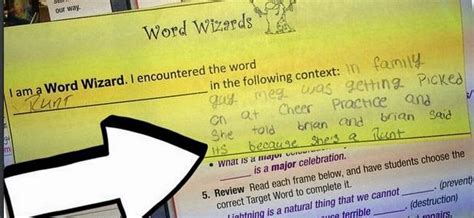 our way.
Word Wizards
I am a Word Wizard. I encountered the word
Runt in the following context: in family
guy, meg was getting Picked
on at Cheer Practice and
She told brian and brian said
its because she's a Runt
• What is a major
is a major celebration.
5. Review Read each frame below, and have students choose the
correct Target Word to complete it.
Lightning is a natural thing that we cannot (prevent)
terrible (destruction)